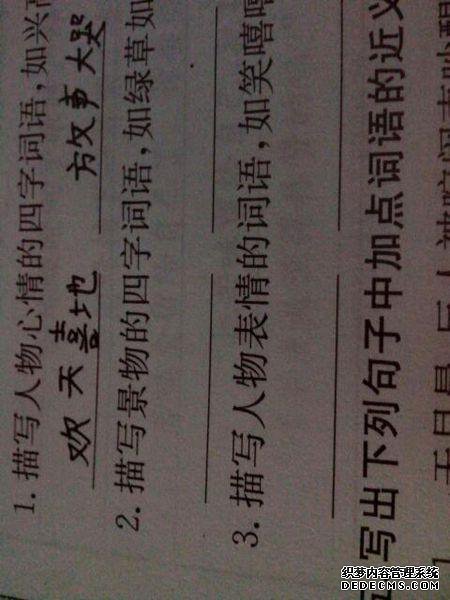 1. 描写人物心情的四字词语,如兴高
欢天喜地 放声大哭
2. 描写景物的四字词语,如绿草如
3. 描写人物表情的词语,如笑嘻嘻
写出下列句子中加点词语的近义
1
织梦内容管理系统
DEDECMS.COM